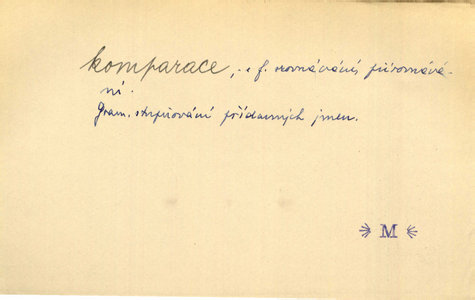 komparace, -e f. srovnávání, přirovnává-
ní.
Gram. stupňování přídavných jmen.
M